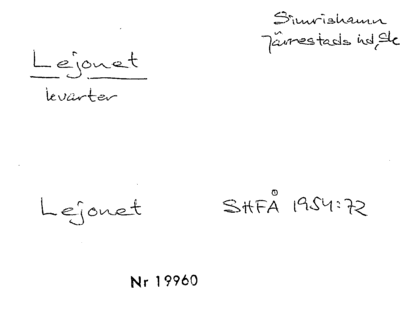 Simrishamn
Järrestads hd, Sk
Lejonet
kvarter
Lejonet SHFÅ 1954:72
Nr 19960